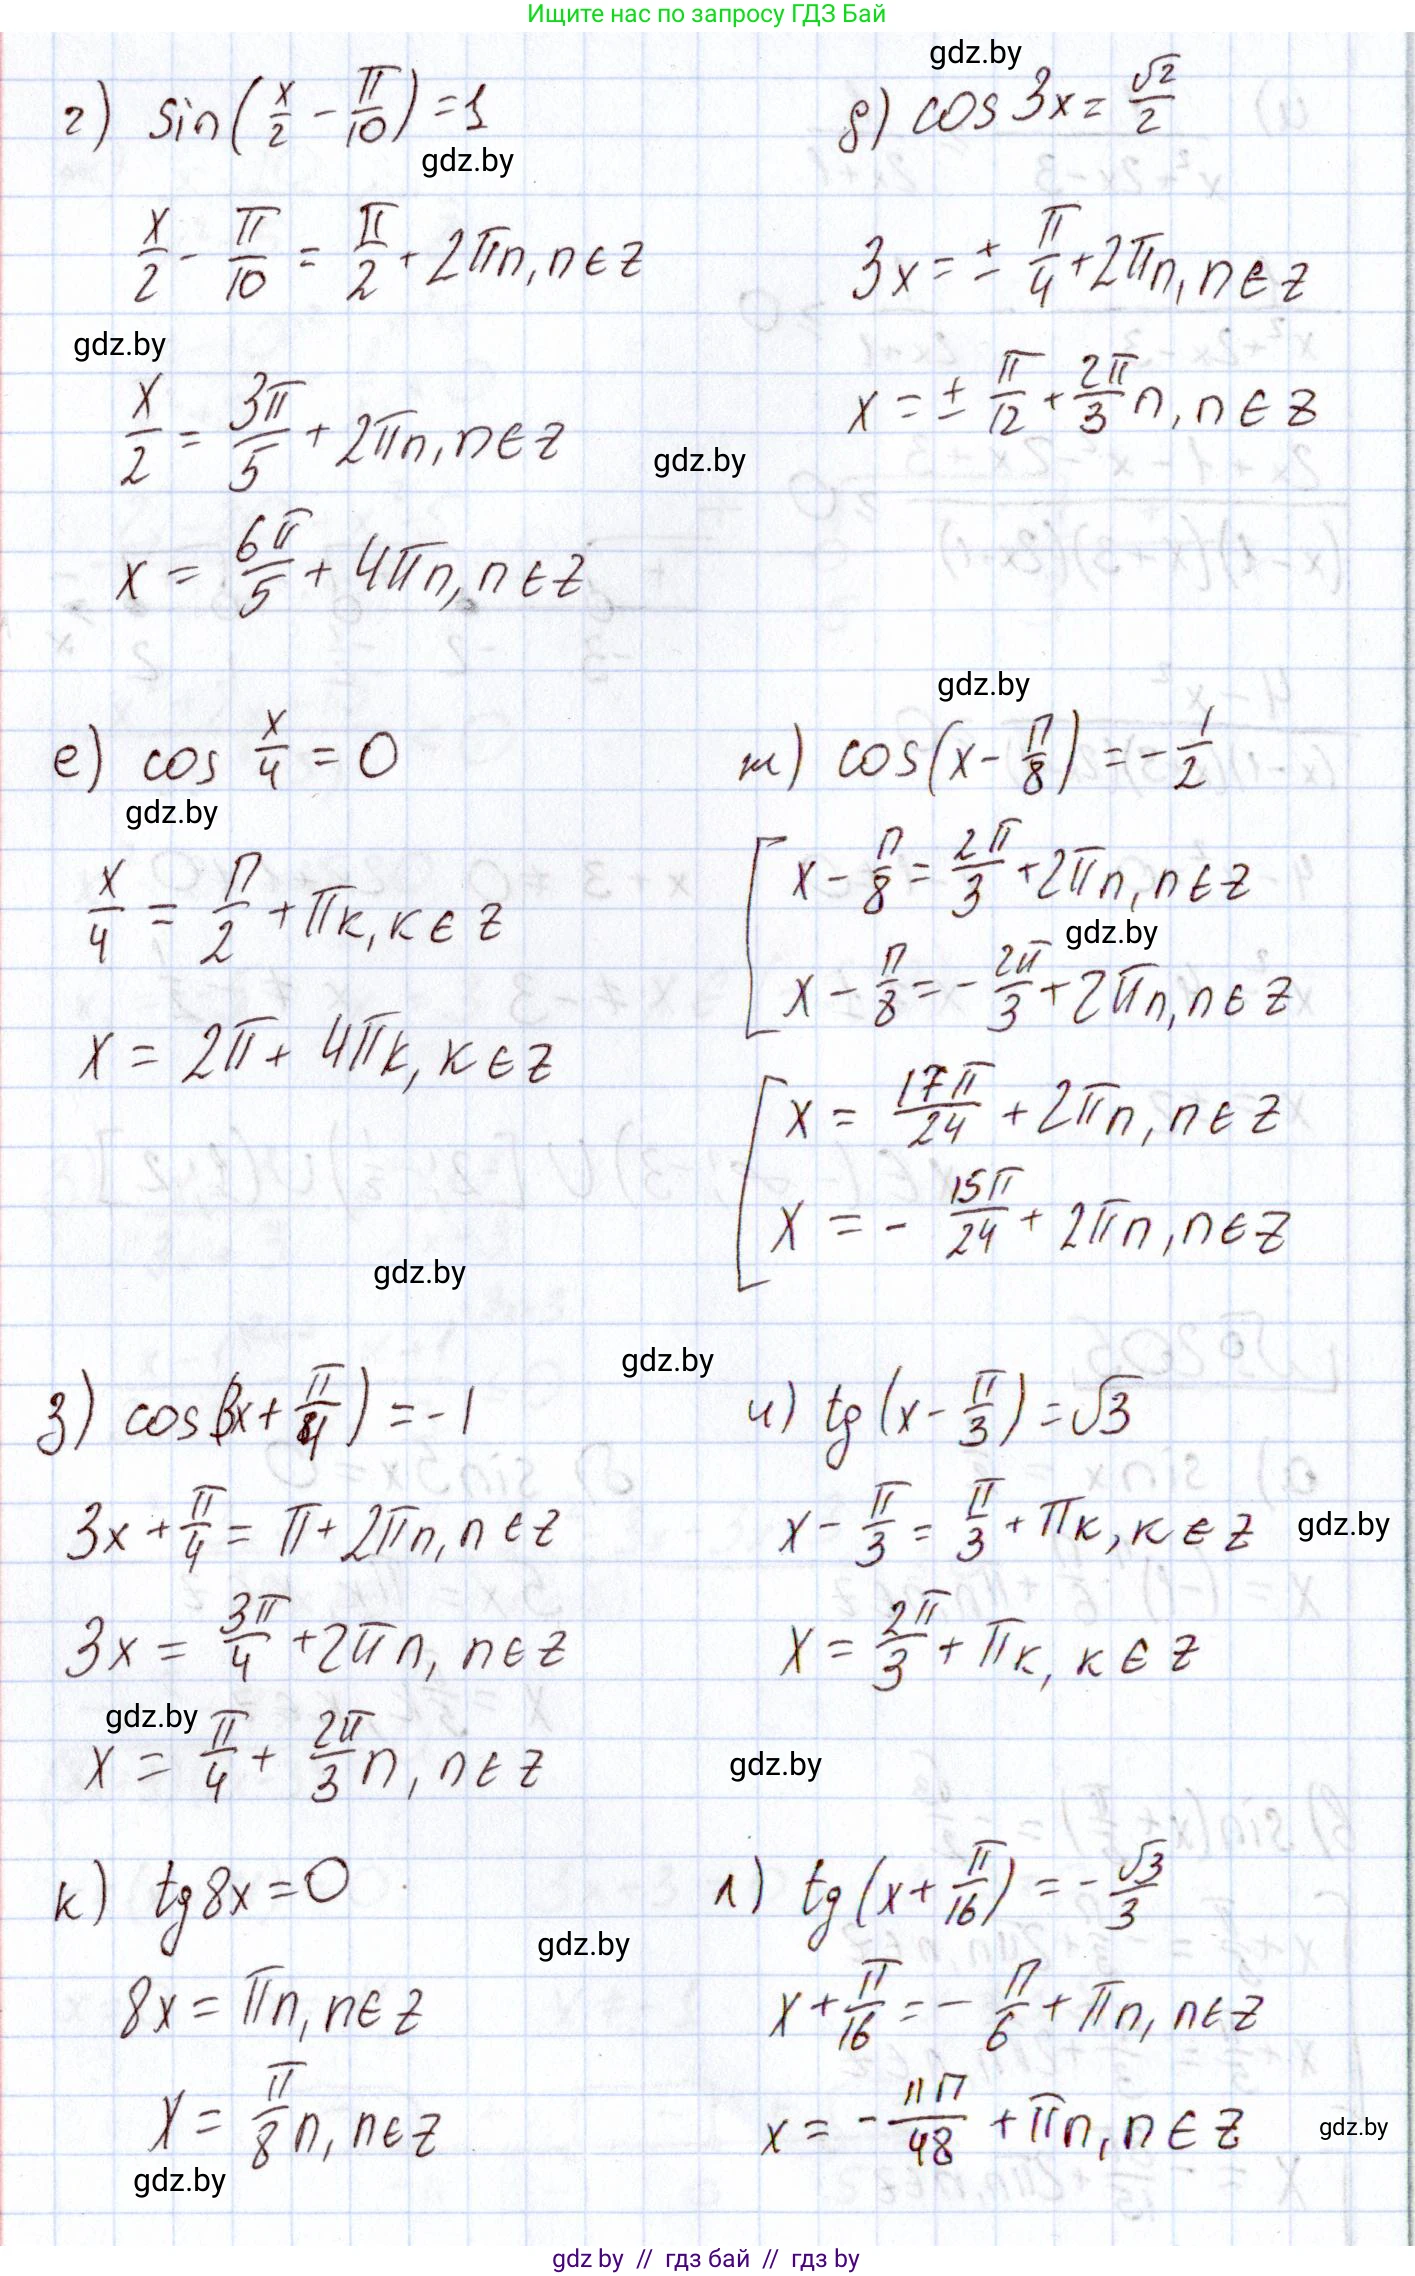 Ищите нас по запросу ГДЗ Бай
gdz.by
г) sin(x/2 - π/10) = 1
gdz.by
x/2 - π/10 = π/2 + 2πn, n ∈ z
gdz.by
x/2 = 3π/5 + 2πn, n ∈ z
gdz.by
x = 6π/5 + 4πn, n ∈ z
д) cos 3x = √2/2
3x = ± π/4 + 2πn, n ∈ z
x = ± π/12 + 2π/3 n, n ∈ z
gdz.by
е) cos x/4 = 0
gdz.by
x/4 = π/2 + πк, к ∈ z
x = 2π + 4πк, к ∈ z
ж) cos(x - π/8) = - 1/2
[ x - π/8 = 2π/3 + 2πn, n ∈ z
gdz.by
x - π/8 = - 2π/3 + 2πn, n ∈ z
[ x = 17π/24 + 2πn, n ∈ z
x = - 15π/24 + 2πn, n ∈ z
gdz.by
gdz.by
з) cos(3x + π/4) = -1
3x + π/4 = π + 2πn, n ∈ z
3x = 3π/4 + 2πn, n ∈ z
gdz.by
x = π/4 + 2π/3 n, n ∈ z
и) tg(x - π/3) = √3
x - π/3 = π/3 + πк, к ∈ z
gdz.by
x = 2π/3 + πк, к ∈ z
gdz.by
к) tg8x = 0
gdz.by
8x = πn, n ∈ z
x = π/8 n, n ∈ z
gdz.by
л) tg(x + π/16) = - √3/3
x + π/16 = - π/6 + πn, n ∈ z
x = - 11π/48 + πn, n ∈ z
gdz.by
gdz by // гдз бай // гдз by